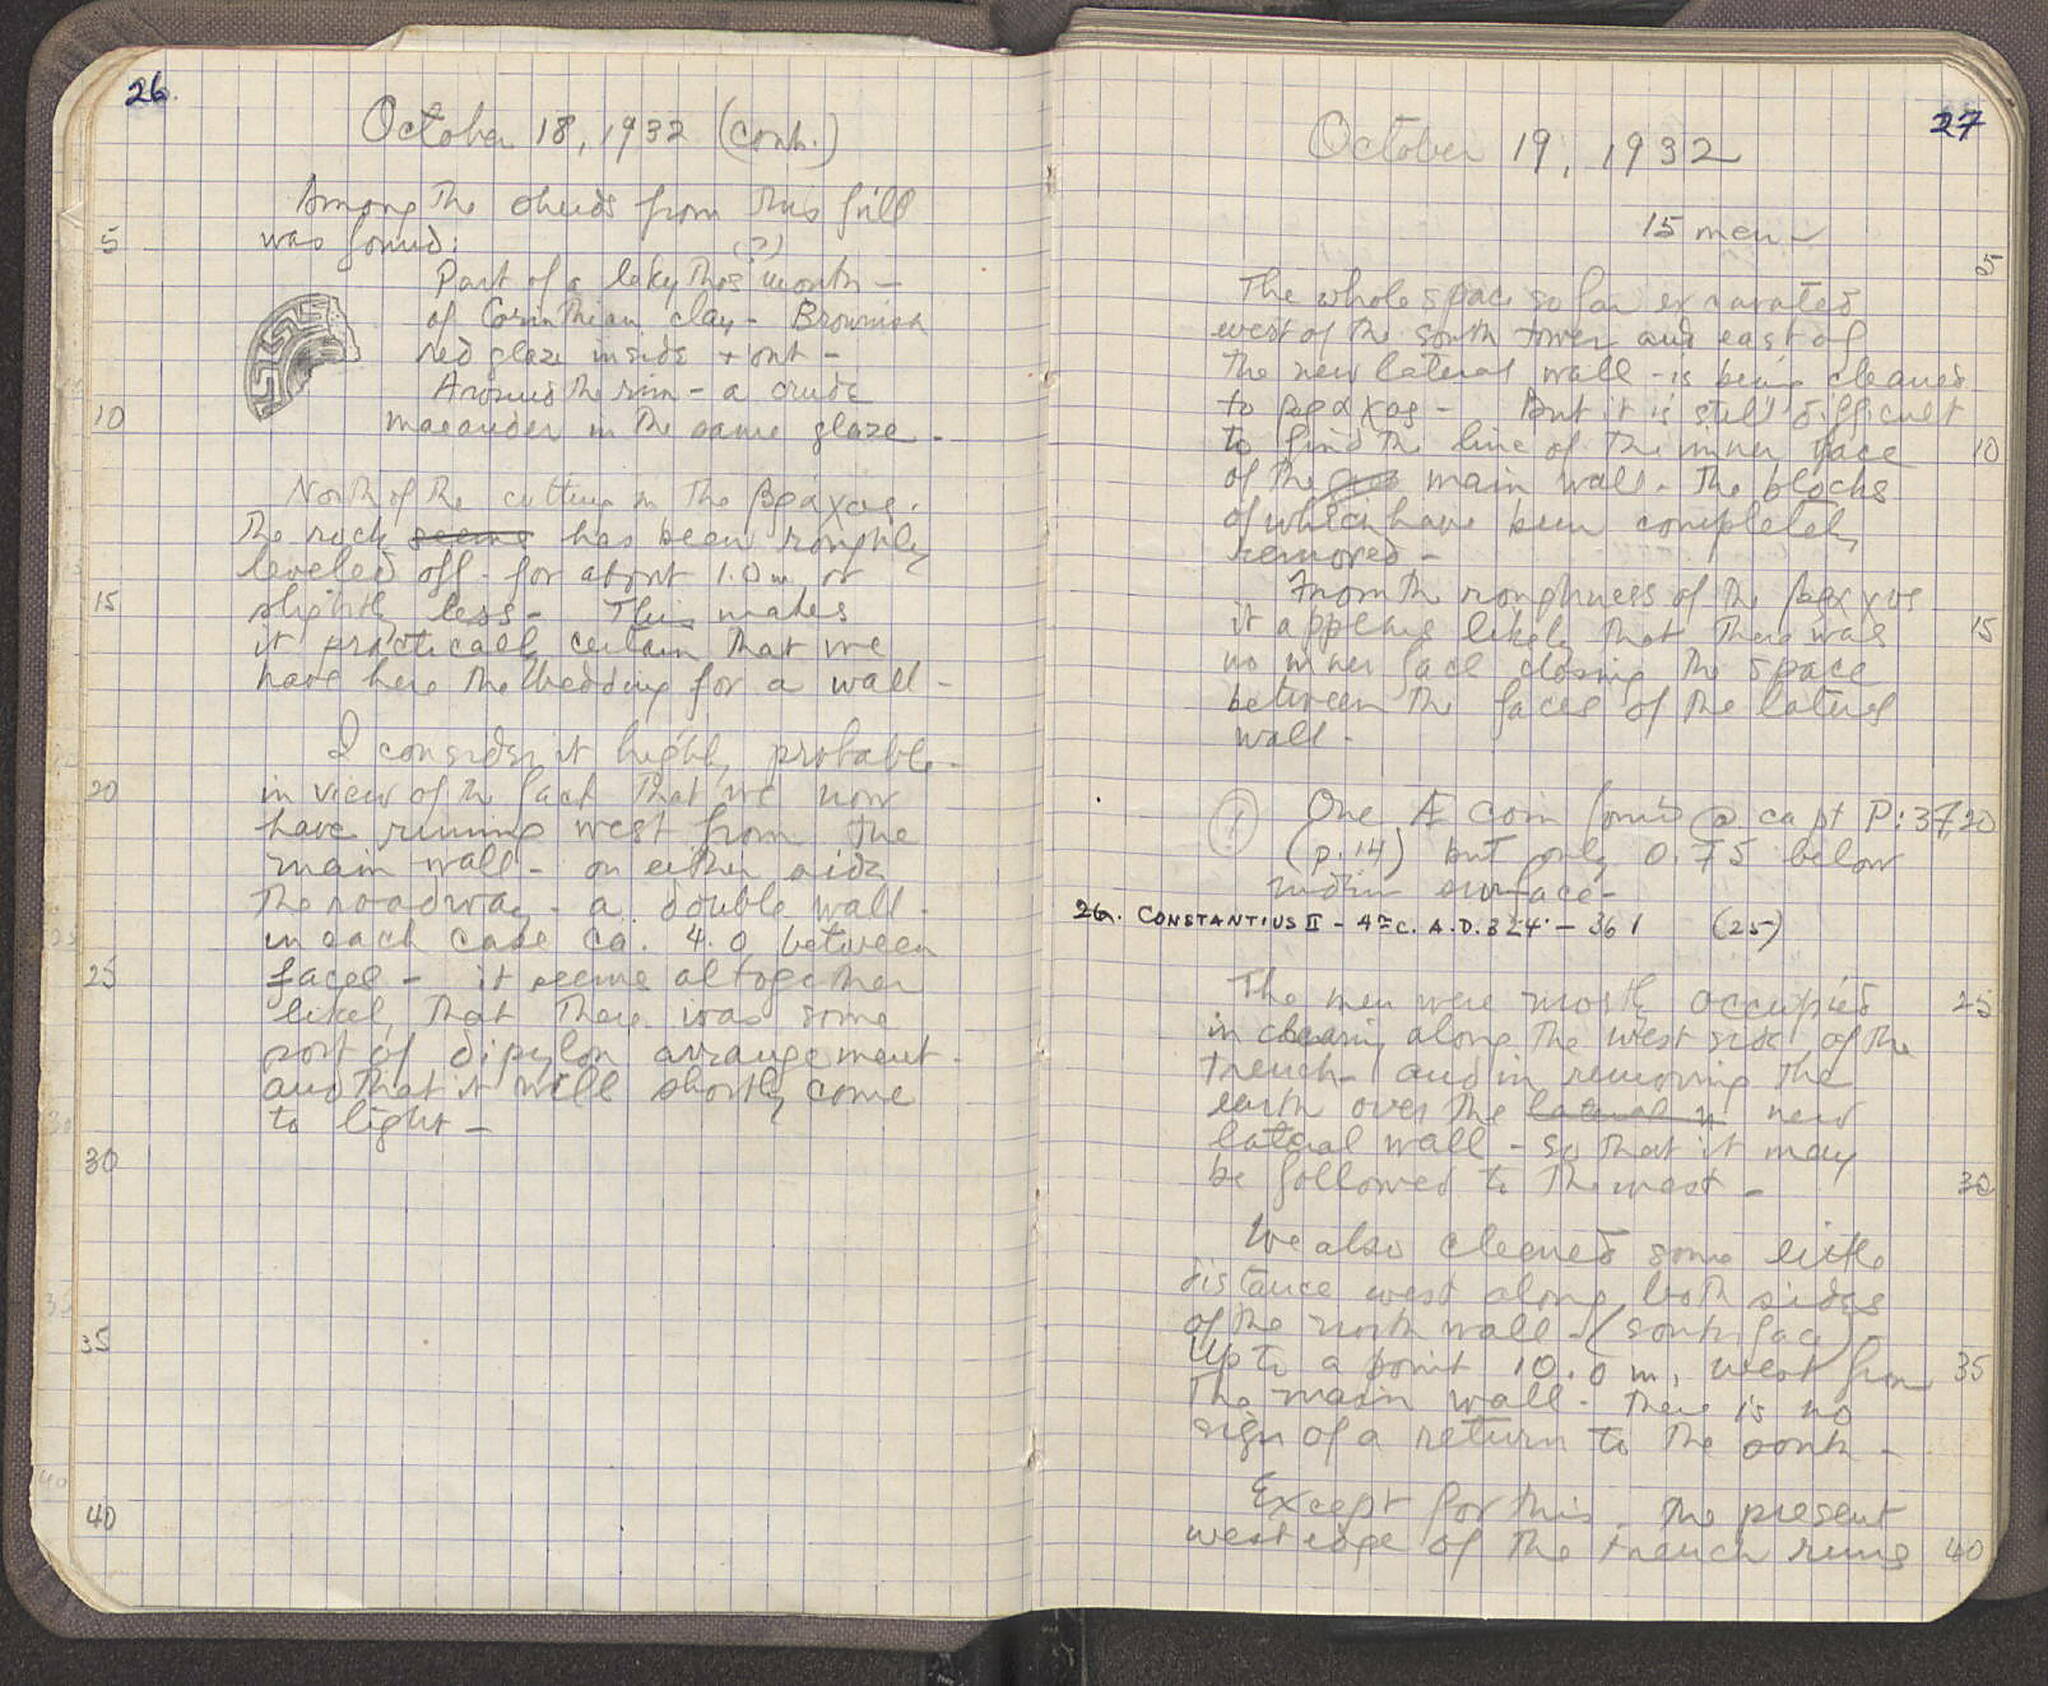 26.
October 18, 1932 (cont.)
Among the sherds from this fill
5
was found:
(?)
Part of a lekythos mouth –
of Corinthian clay – Brownish
red glaze inside + out –
Around the rim – a crude
10
maeander in the same glaze –
North of the cutting in the βράχος.
The rock seems has been roughly
leveled off – for about 1.0 m or
15
slightly less – This makes
it practically certain that we
have here the bedding for a wall –
I consider it highly probable –
20
in view of the fact that we now
have running west from the
main wall – on either side
the roadway – a double wall –
in each case ca. 4.0 between
25
faces – it seems altogether
likely that there was some
sort of dipylon arrangement –
and that it will shortly come
to light –
30
35
40
27
October 19, 1932
15 men –
5
The whole space so far excavated
west of the south tower and east of
the new lateral wall – is being cleaned
to βράχος – But it is still difficult
to find the line of the inner face
10
of the main wall – the blocks
of which have been completely
removed –
From the roughness of the βράχος
it appears likely that there was
15
no inner face closing the space
between the faces of the lateral
wall –
One Æ coin found @ ca pt P:37
20
(p. 14) but only 0.75 below
modern surface –
26a. CONSTANTIUS II – 4th C. A.D. 324 – 361 (25)
The men were mostly occupied
25
in clearing along the west side of the
trench – and in removing the
earth over the lateral w new
lateral wall – so that it may
be followed to the west –
30
We also cleaned some little
distance west along both sides
of the north wall – (south face)
Up to a point 10.0 m. west from
35
the main wall – there is no
sign of a return to the south –
Except for this – the present
west edge of the trench runs
40